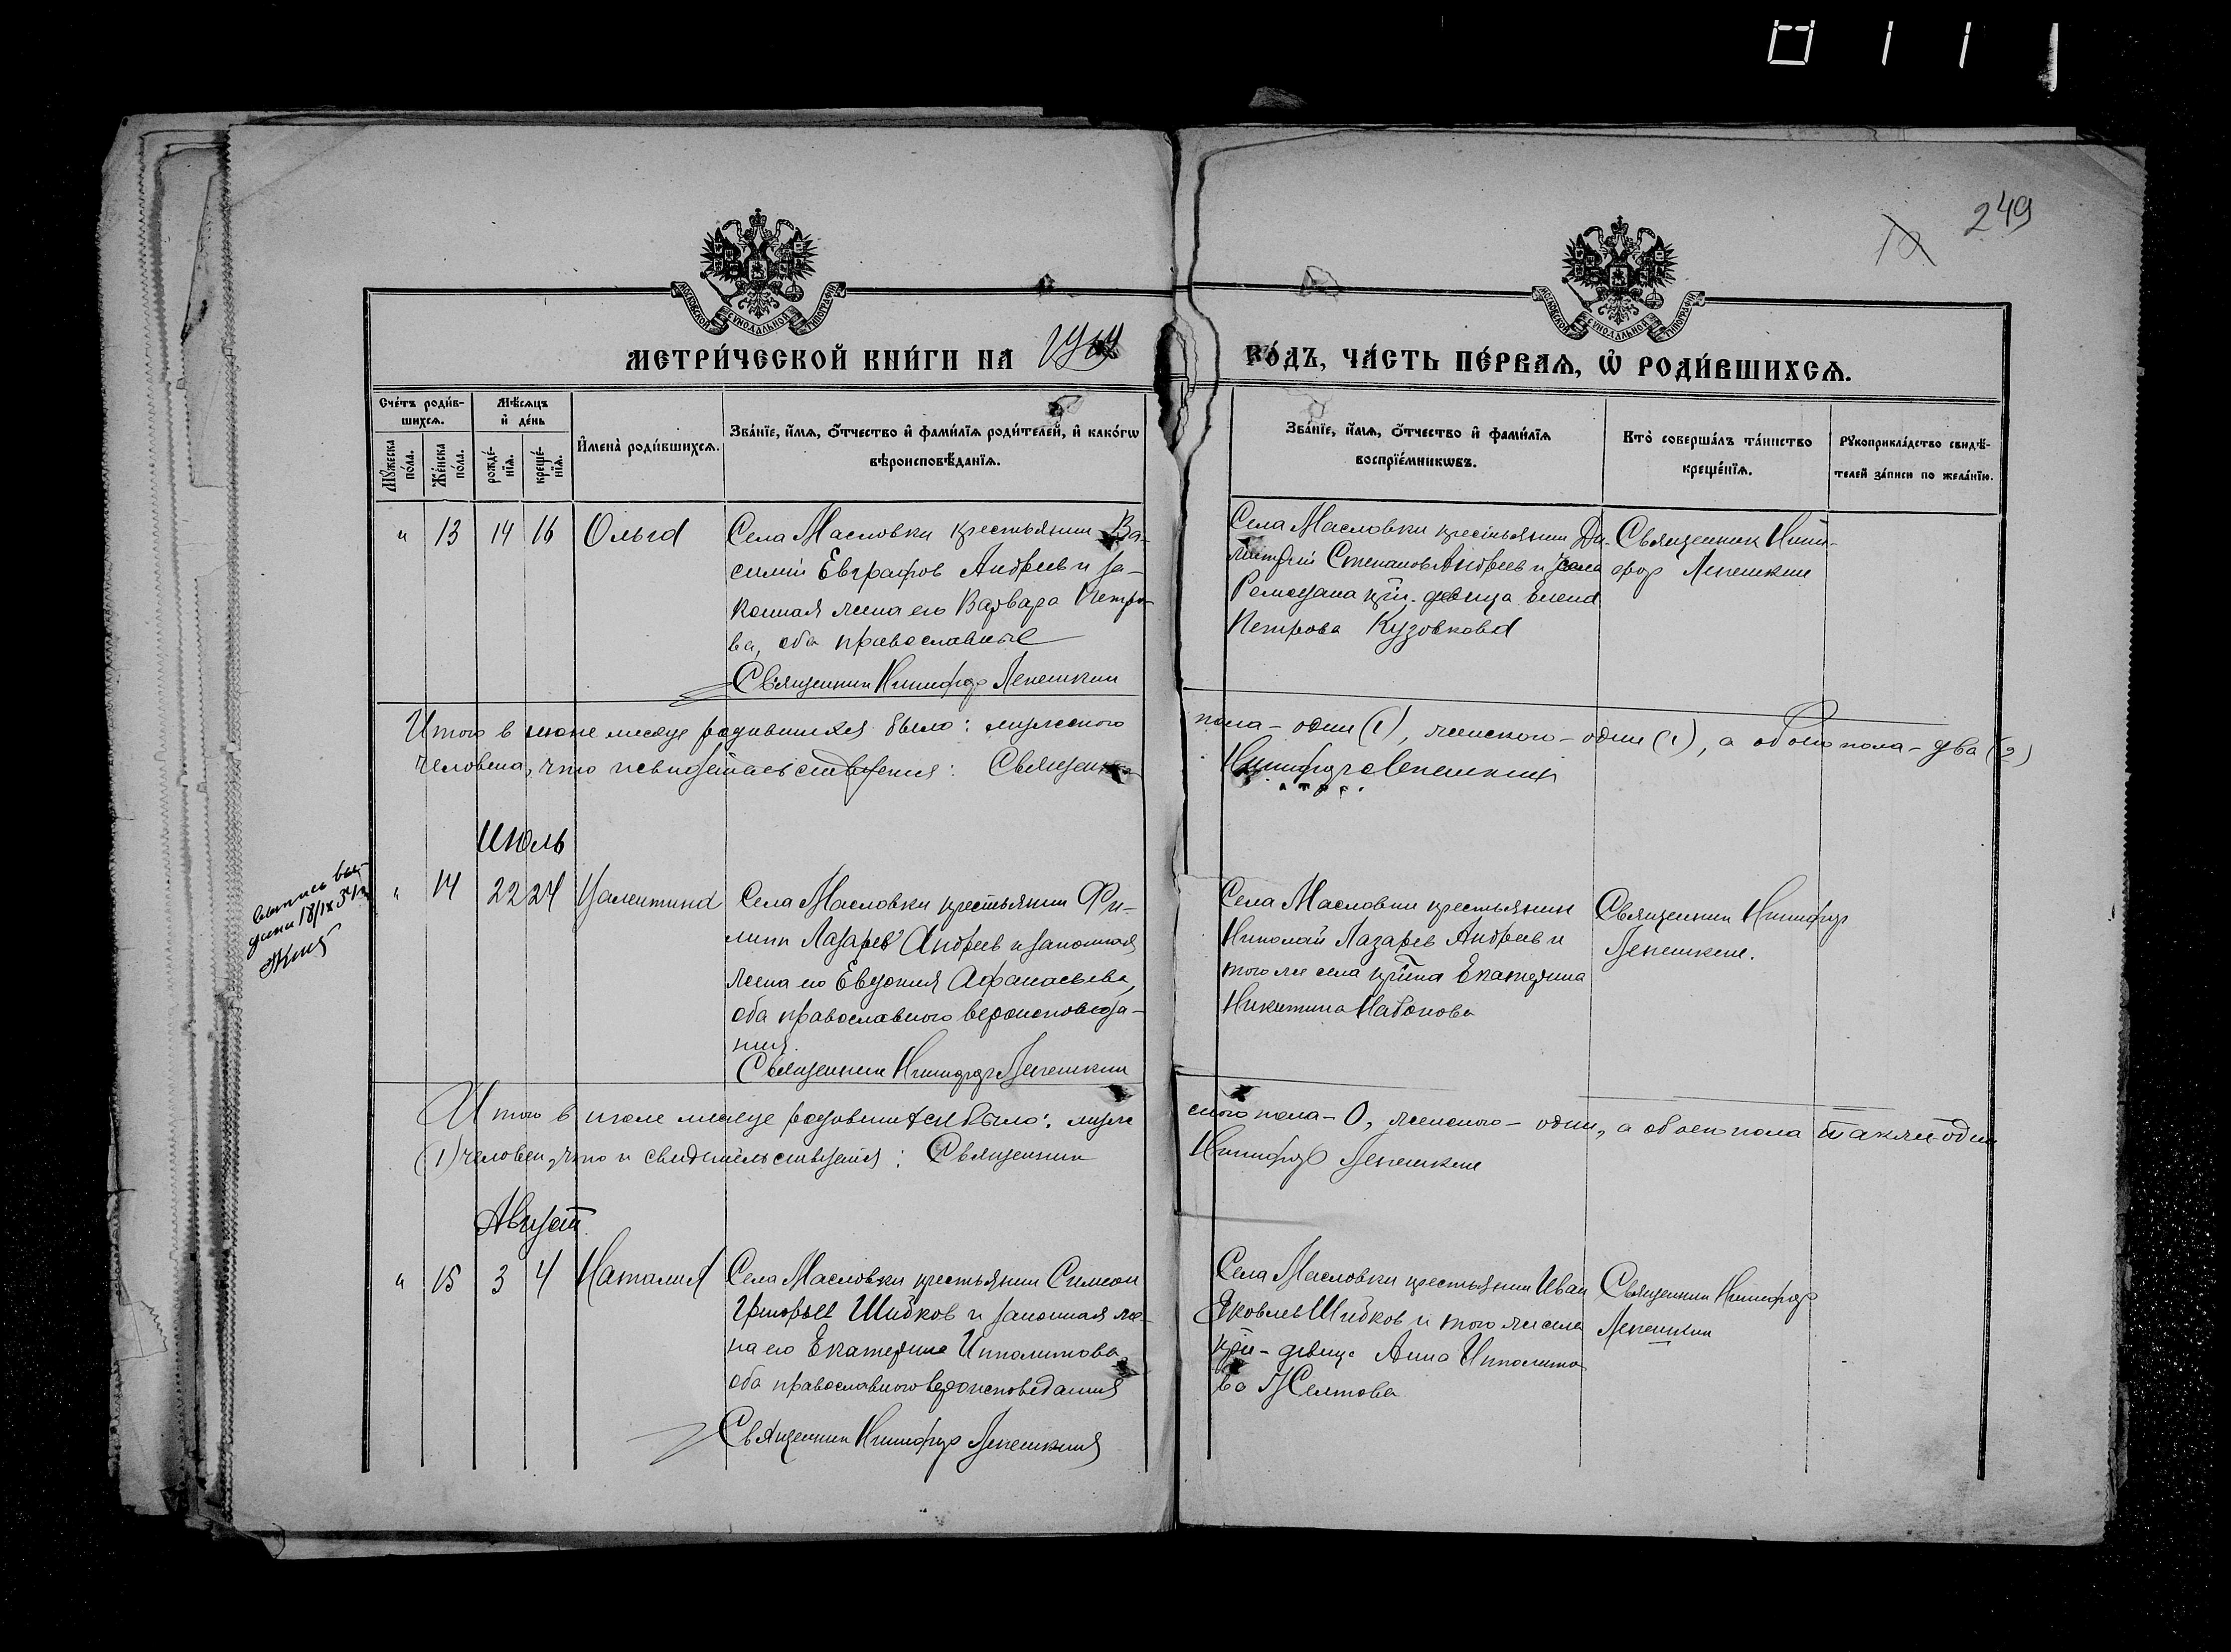 249
МОСКОВСКОЙ СУНОДАЛЬНОЙ ТИПОГРАФІИ
МОСКОВСКОЙ СУНОДАЛЬНОЙ ТИПОГРАФІИ
МЕТРИ́ЧЕСКОЙ КНИ́ГИ НА
ГО́ДЪ, ЧА́СТЬ ПЕ́РВАѦ, Ѡ҆ РОДИ́ВШИХСѦ.
Сче́тъ роди́в-
шихсѧ.
Мꙋ́жеска по́ла.
Же́нска по́ла.
Мѣ́сѧцъ
и҆ де́нь
рожде́-нїѧ.
креще́-нїѧ.
И҆мена̀ роди́вшихсѧ.
Зва́нїе, и҆́мѧ, ѻ҆́тчество и҆ фами́лїѧ роди́телей, и҆ како́гѡ
вѣроисповѣ́данїѧ.
Зва́нїе, и҆́мѧ, ѻ҆́тчество и҆ фами́лїѧ
воспрїе́мникѡвъ.
Кто̀ соверша́лъ та́инство
креще́нїѧ.
Рꙋкоприкла́дство свидѣ́-
телей за́писи по жела́нїю.
" 13 14 16 Ольга
Села Масловки крестьянин Ва-
силий Евграфов Андреев и за-
конная жена его Варвара Петро-
ва, оба православные
Священник Никифор Лепешкин
Села Масловки крестьянин Ди-
митрий Степанов Андреев и села
кр-ая девица Елена
Петрова Кузовкова
Священник Ники-
фор Лепешкин
Итого в июне месяце родившихся было: мужеского
пола - один (1), женского - один (1), а обоего пола - два (2)
человека, что и свидетельствуется: Священник
Никифор Лепешкин
Июль
" 14 22 24 Валентина
Села Масловки крестьянин Фи-
липп Лазарев Андреев и законная
жена его Евдокия Афанасьева,
оба православного вероисповеда-
ния.
Священник Никифор Лепешкин
Села Масловки крестьянин
Николай Лазарев Андреев и
того же села кр-нка Екатерина
Никитина Набокова
Священник Никифор
Лепешкин.
выпись вы-
дана 18/IX
Итого в июле месяце родившихся было: муже
ского пола - 0, женского - один, а обоего пола также один
(1) человек, что и свидетельствуется: Священник
Никифор Лепешкин
Август
" 15 3 4 Наталия
Села Масловки крестьянин Симеон
Григорьев Шибков и законная же-
на его Екатерина Ипполитова
оба православного вероисповедания
Священник Никифор Лепешкин
Села Масловки крестьянин Иван
Яковлев Шибков и того же села
кр-ая девица Анна Ипполито
ва Желтова
Священник Никифор
Лепешкин